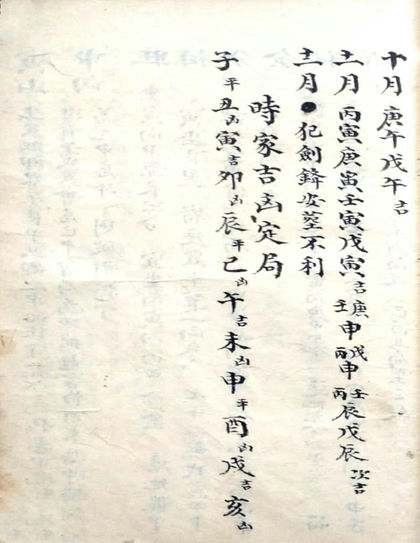 十月庚午戊午吉
十一月丙寅庚寅壬寅戊寅吉庚壬申戊丙申壬丙辰戊辰次吉
十二月●犯劍鋒安塟不利
時家吉凶定局
子平丑凶寅吉卯凶辰平巳凶午吉未凶申平酉凶戌吉亥凶